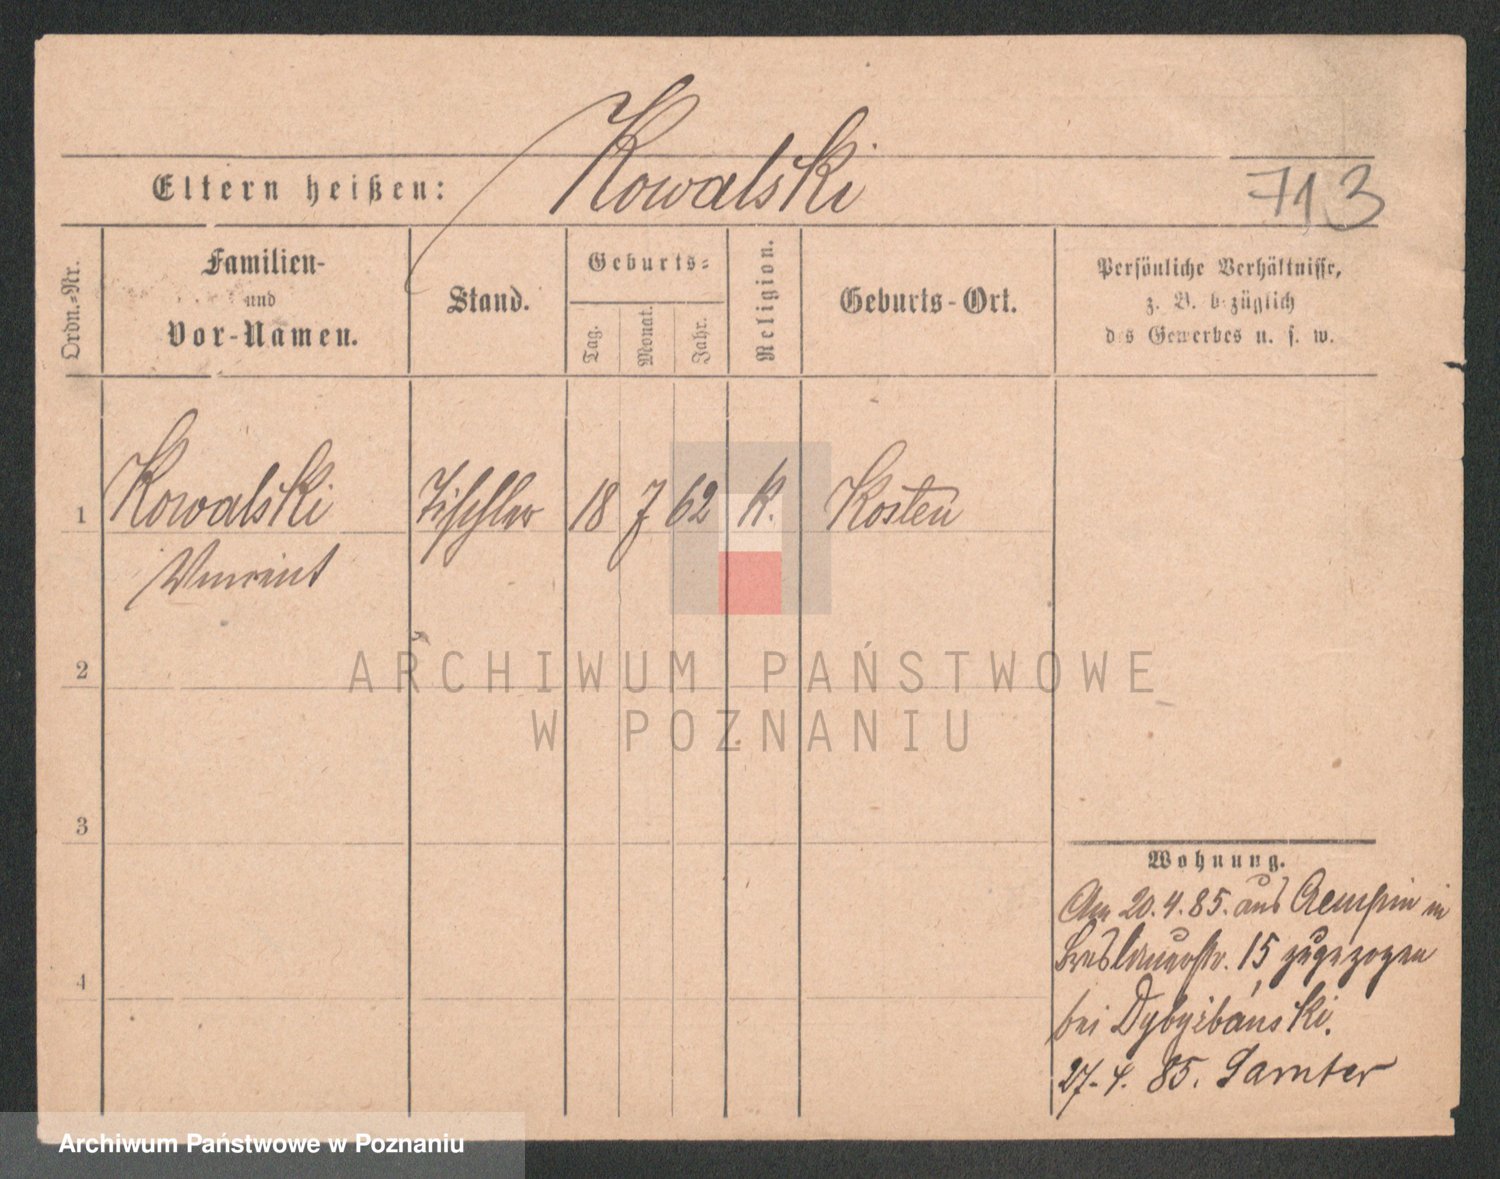 Kowalski
Eltern heißen:
713
Ordn.-Nr.
Familien-
und
Vor-Namen.
Stand.
Geburts-
Tag.
Monat.
Jahr.
Religion.
Geburts-Ort.
Persönliche Verhältnisse,
z. B. bezüglich
des Gewerbes u. s. w.
1
Kowalski
Tischler
18
7
62
k.
Kosten
Vincent
2
ARCHIWUM PAŃSTWOWE
W POZNANIU
3
4
Wohnung.
Am 20.4.85. aus in
Breslauerstr. 15 zugezogen
bei
27.4.85. Samter
Archiwum Państwowe w Poznaniu